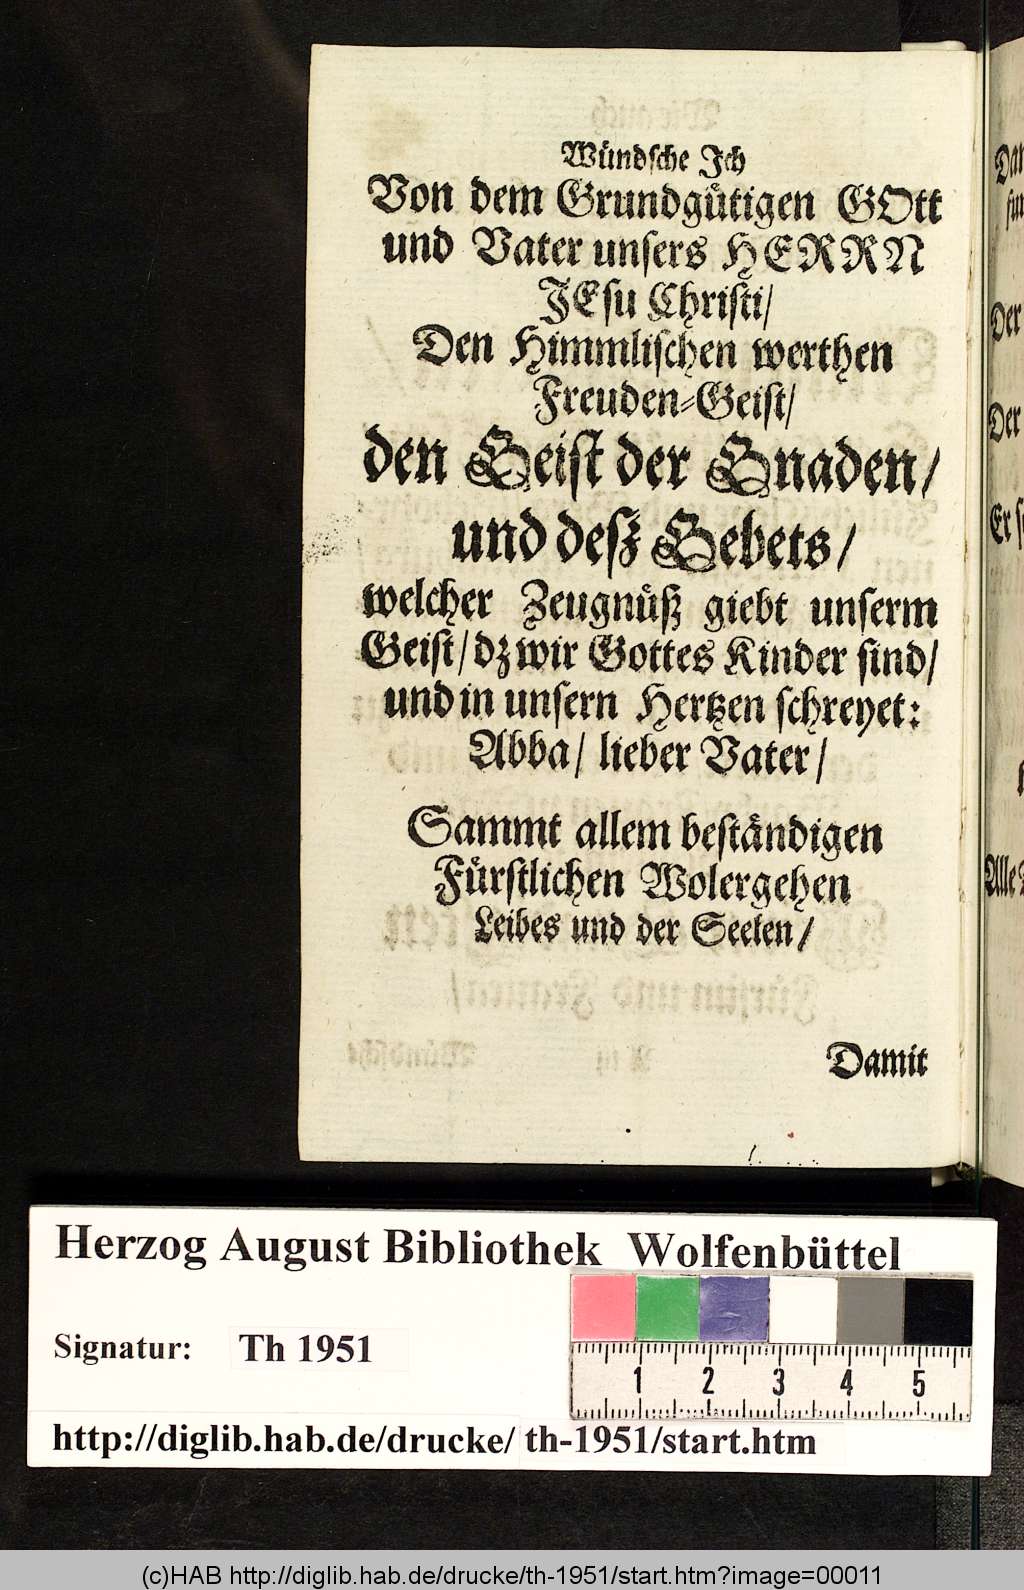 Wündsche Jch
Von dem Grundgütigen GOtt
und Vater unsers HERRN
JEsu Christi/
Den Himmlischen werthen
Freuden-Geist/
den Geist der Gnaden/
und deß Gebets/
welcher Zeugnüß giebt unserm
Geist/ dz wir Gottes Kinder sind/
und in unsern Hertzen schreyet:
Abba/ lieber Vater/
Sammt allem beständigen
Fürstlichen Wolergehen
Leibes und der Seelen/
Damit
Der
Der
Herzog August Bibliothek Wolfenbüttel
Signatur: Th 1951
1 2 3 4 5
http://diglib.hab.de/drucke/ th-1951/start.htm
(c)HAB http://diglib.hab.de/drucke/th-1951/start.htm?image=00011